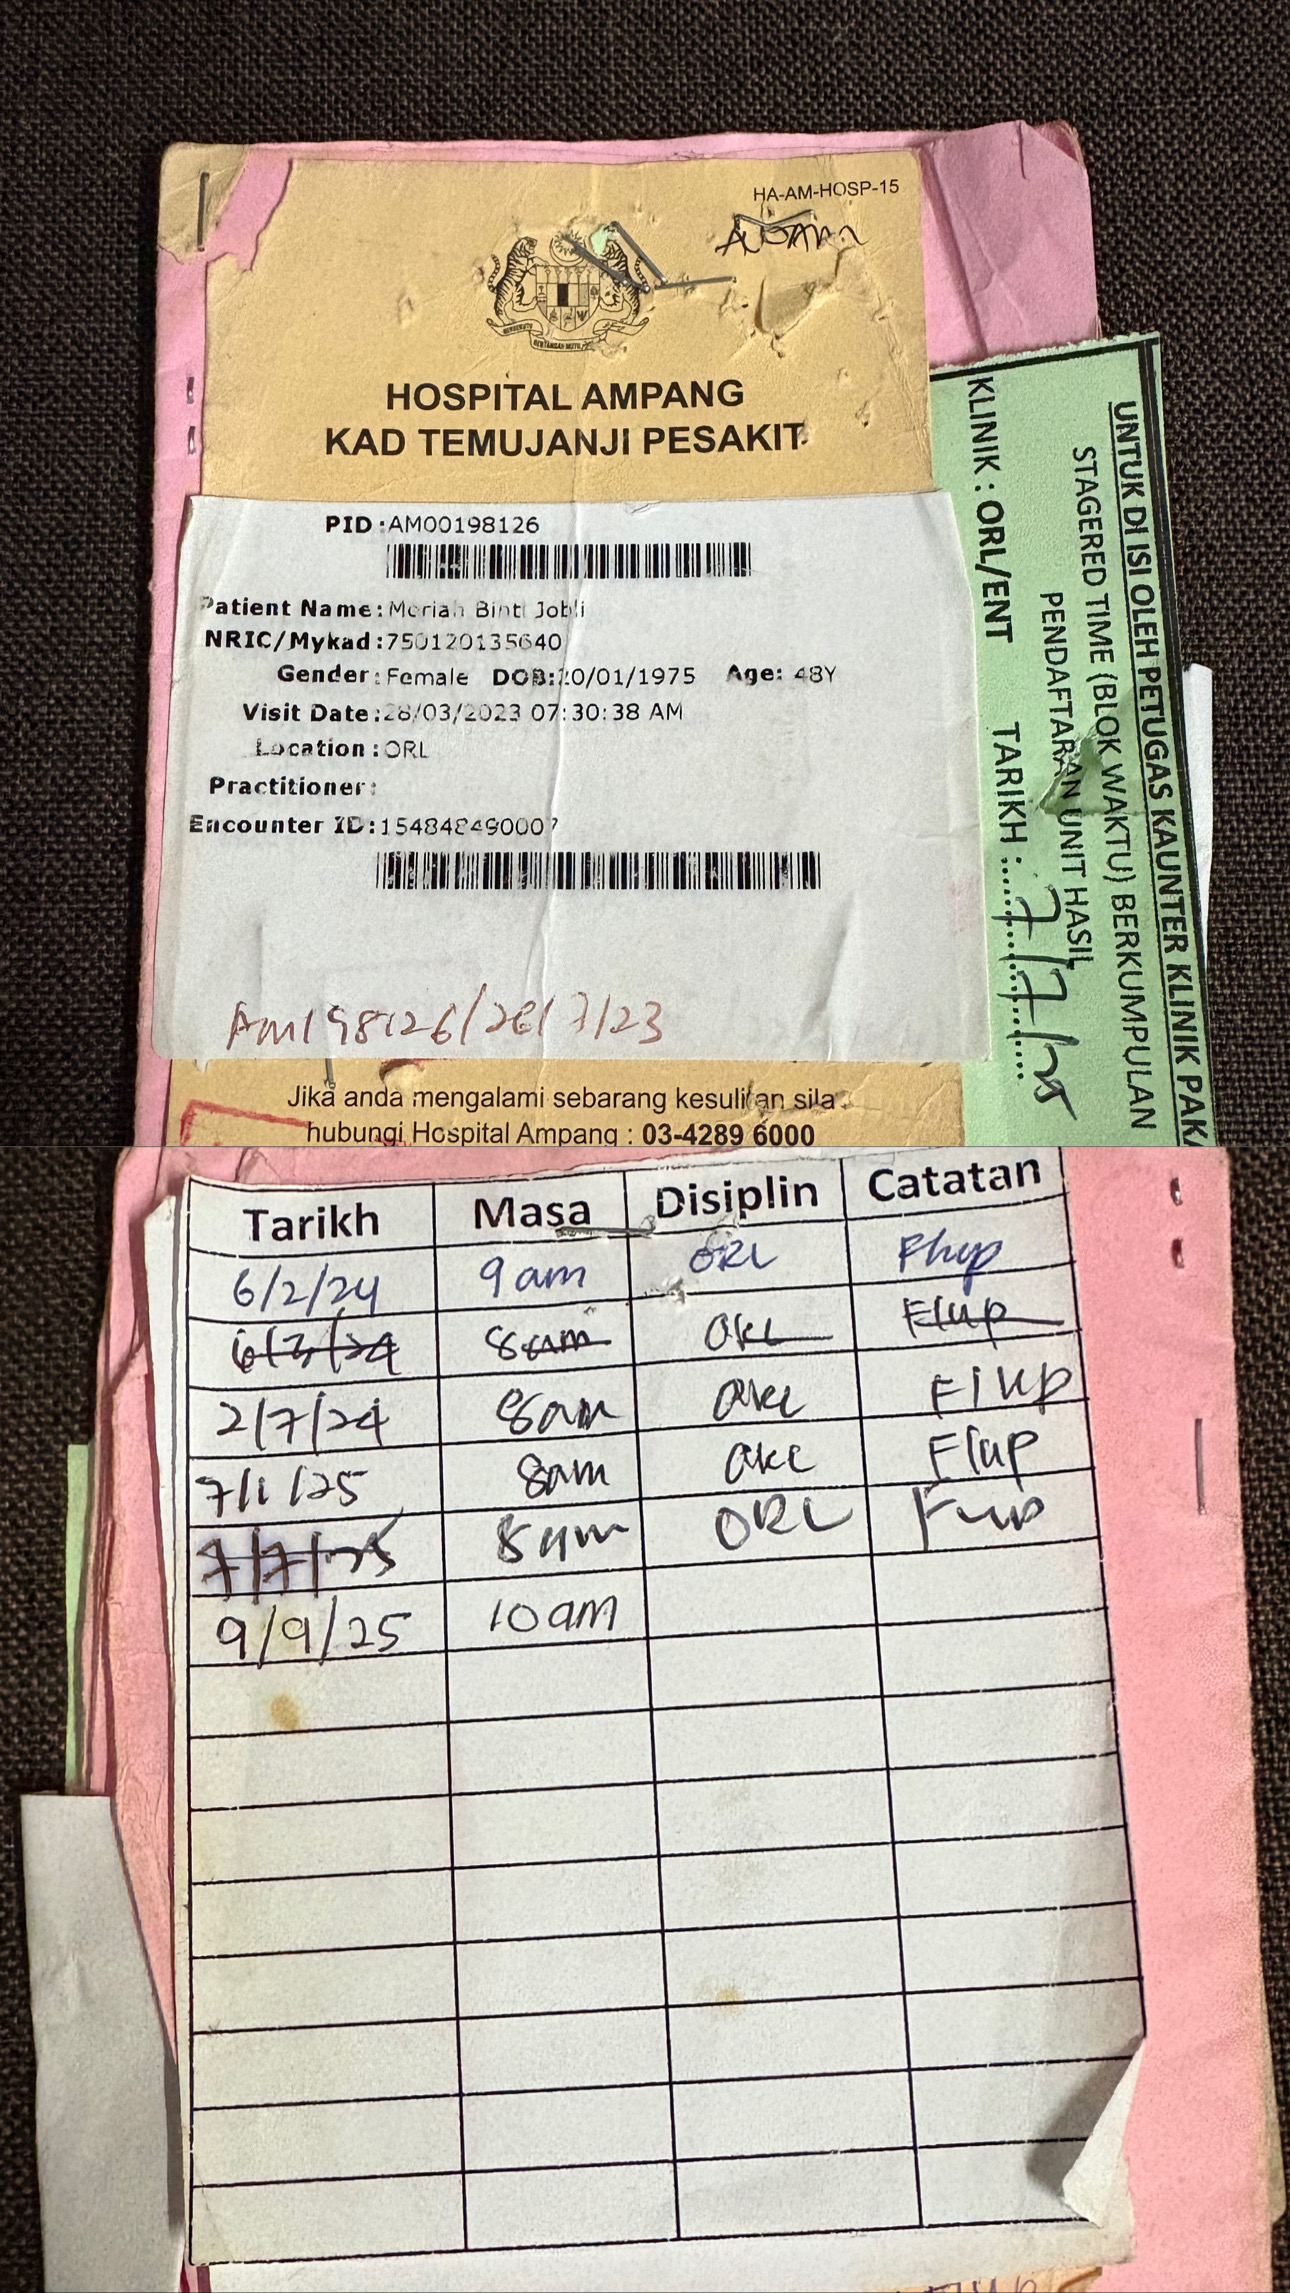 HA-AM-HOSP-15
HOSPITAL AMPANG
KAD TEMUJANJI PESAKIT
PID:AM00198126
Patient Name: Moriah Binti Jobli
NRIC/Mykad:750120135640
Gender: Female DOB:20/01/1975 Age: 48Y
Visit Date:28/03/2023 07:30:38 AM
Location: ORL
Practitioner:
Encounter ID:154848490007
AM198126/28/7/23
Jika anda mengalami sebarang kesulitan sila
hubungi Hospital Ampang : 03-4289 6000
UNTUK DI ISI OLEH PETUGAS KAUNTER KLINIK PAKA
STAGERED TIME (BLOK WAKTU) BERKUMPULAN
PENDAFTARAN UNIT HASIL
KLINIK : ORL/ENT TARIKH : 7/7/25
Tarikh Masa Disiplin Catatan
6/2/24 9am ORL Flup
6/3/24 8am ORL Flup
2/7/24 8am ORL Flup
7/1/25 8am ORL Flup
7/7/25 8am ORL Flup
9/9/25 10am